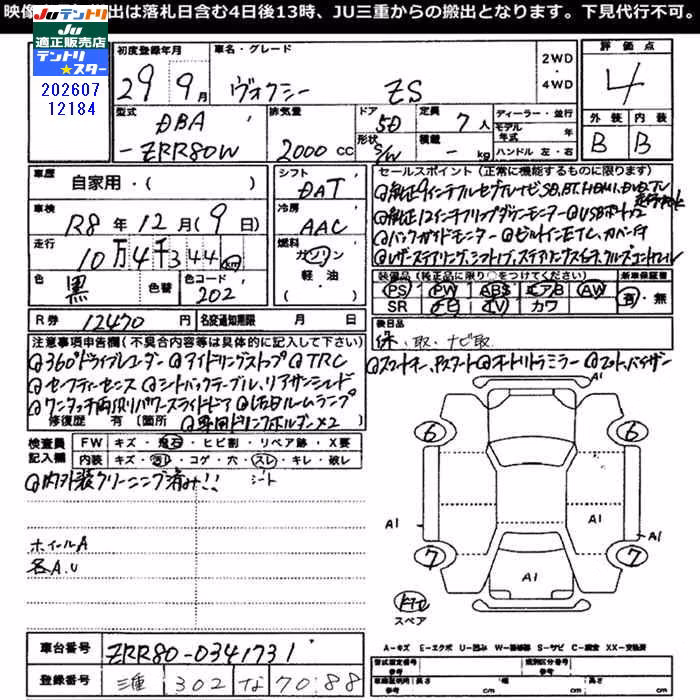 映像 出は落札日含む4日後13時、JU三重からの搬出となります。下見代行不可。
JUテントリ
JU
適正販売店
テントリ
★スター
202607
12184
初度登録年月
29 9月
車名・グレード
ヴォクシー ZS
2WD
・
4WD
評価点
4
型式
DBA
-ZRR80W
排気量
2000cc
ドア
5D
形状
S/W
定員
7人
積載
- kg
ディーラー・並行
モデル年式 年
ハンドル 左・右
外装 内装
B B
車歴
自家用・( )
車検
R8年12月(9日)
走行
10万4千344km
色
黒
色替
色コード
202
シフト
DAT
冷房
AAC
燃料
ガソリン
軽・油
・( )
セールスポイント(正常に機能するものに限ります)
純正9インチフルセグナビ、SD,BT,HDMI,DVD,TV
純正12インチフリップダウンモニター USBポート×2
バックガイドモニター ビルトインETC、カバー付
レザーステアリング、シフトノブ、ステアリングスイッチ、クルーズコントロール
装備品(純正品に限り○をつけてください) 新車保証書
PS PW ABS エアB AW 有・無
SR ナビ TV カワ
R券 12470円
名変通知期限 月 日
後日品
保・取・ナビ取
注意事項申告欄(不具合内容等は具体的に記入して下さい)
360°ドライブレコーダー アイドリングストップ TRC
セーフティーセンス シートバックテーブル、リアサンシェード
ワンタッチ両側パワースライドドア LEDルームランプ
修復歴 有 [箇所 専用ドリンクホルダー×2
スマートキー、Pスタート オートリトラミラー マット、バイザー
検査員記入欄
FW キズ・飛石・ヒビ割・リペア跡・X要
内装 キズ・汚レ・コゲ・穴・スレ・キレ・破レ
内外装クリーニング済み!! シート
ホイールA
各A.U
A1
6
6
A1
A1
A1
7
7
A1
スペア
A-キズ E-エクボ U-凹み W-補修跡 S-サビ C-腐食 XX-交換済
車台番号 ZRR80-0341731
登録番号 三重 302 な 70-88
型式指定番号
参考
類別区分番号
参考
車輌証明用
参考
長さ cm
幅 cm
高さ cm